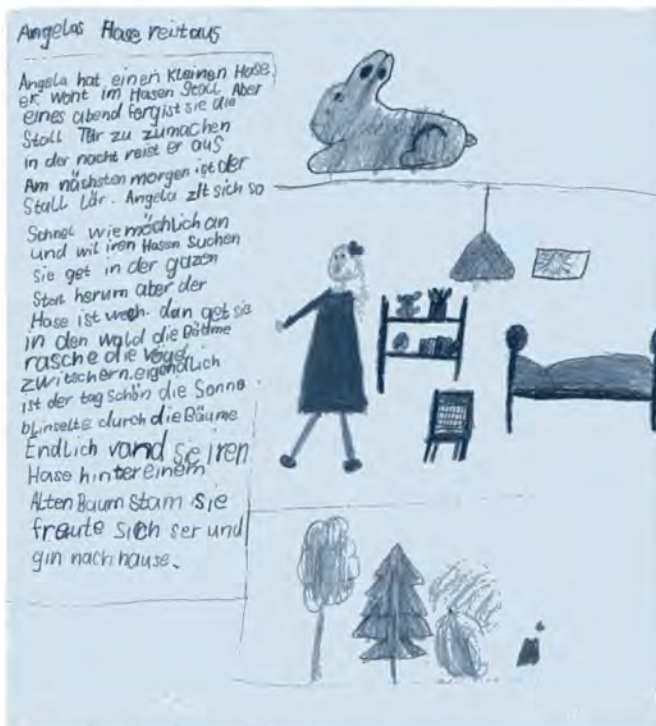 Angelas Hase reist aus
Angela hat einen kleinen Hase
er wont im Hasen Stall Aber
eines abend fergist sie die
Stall Tür zu zumachen
in der nacht reist er aus
Am nächsten morgen ist der
Stall lär. Angela zIt sich so
Schnel wiemöchlich an
und wil iren Hasen suchen
sie get in der gazen
Statt herum aber der
Hase ist wech. dan get sie
in den wald die Bäume
rasche die vögel
zwitschern. eigendlich
ist der tag schön die Sonne
blinselte durch die Bäume
Endlich vand sie iren
Hase hinter einem
Alten Baum stam sie
freute sich ser und
gin nach hause.